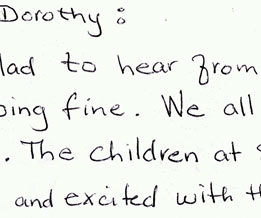 Dorothy:
lad to hear from
oing fine. We all
. The children at
and excited with